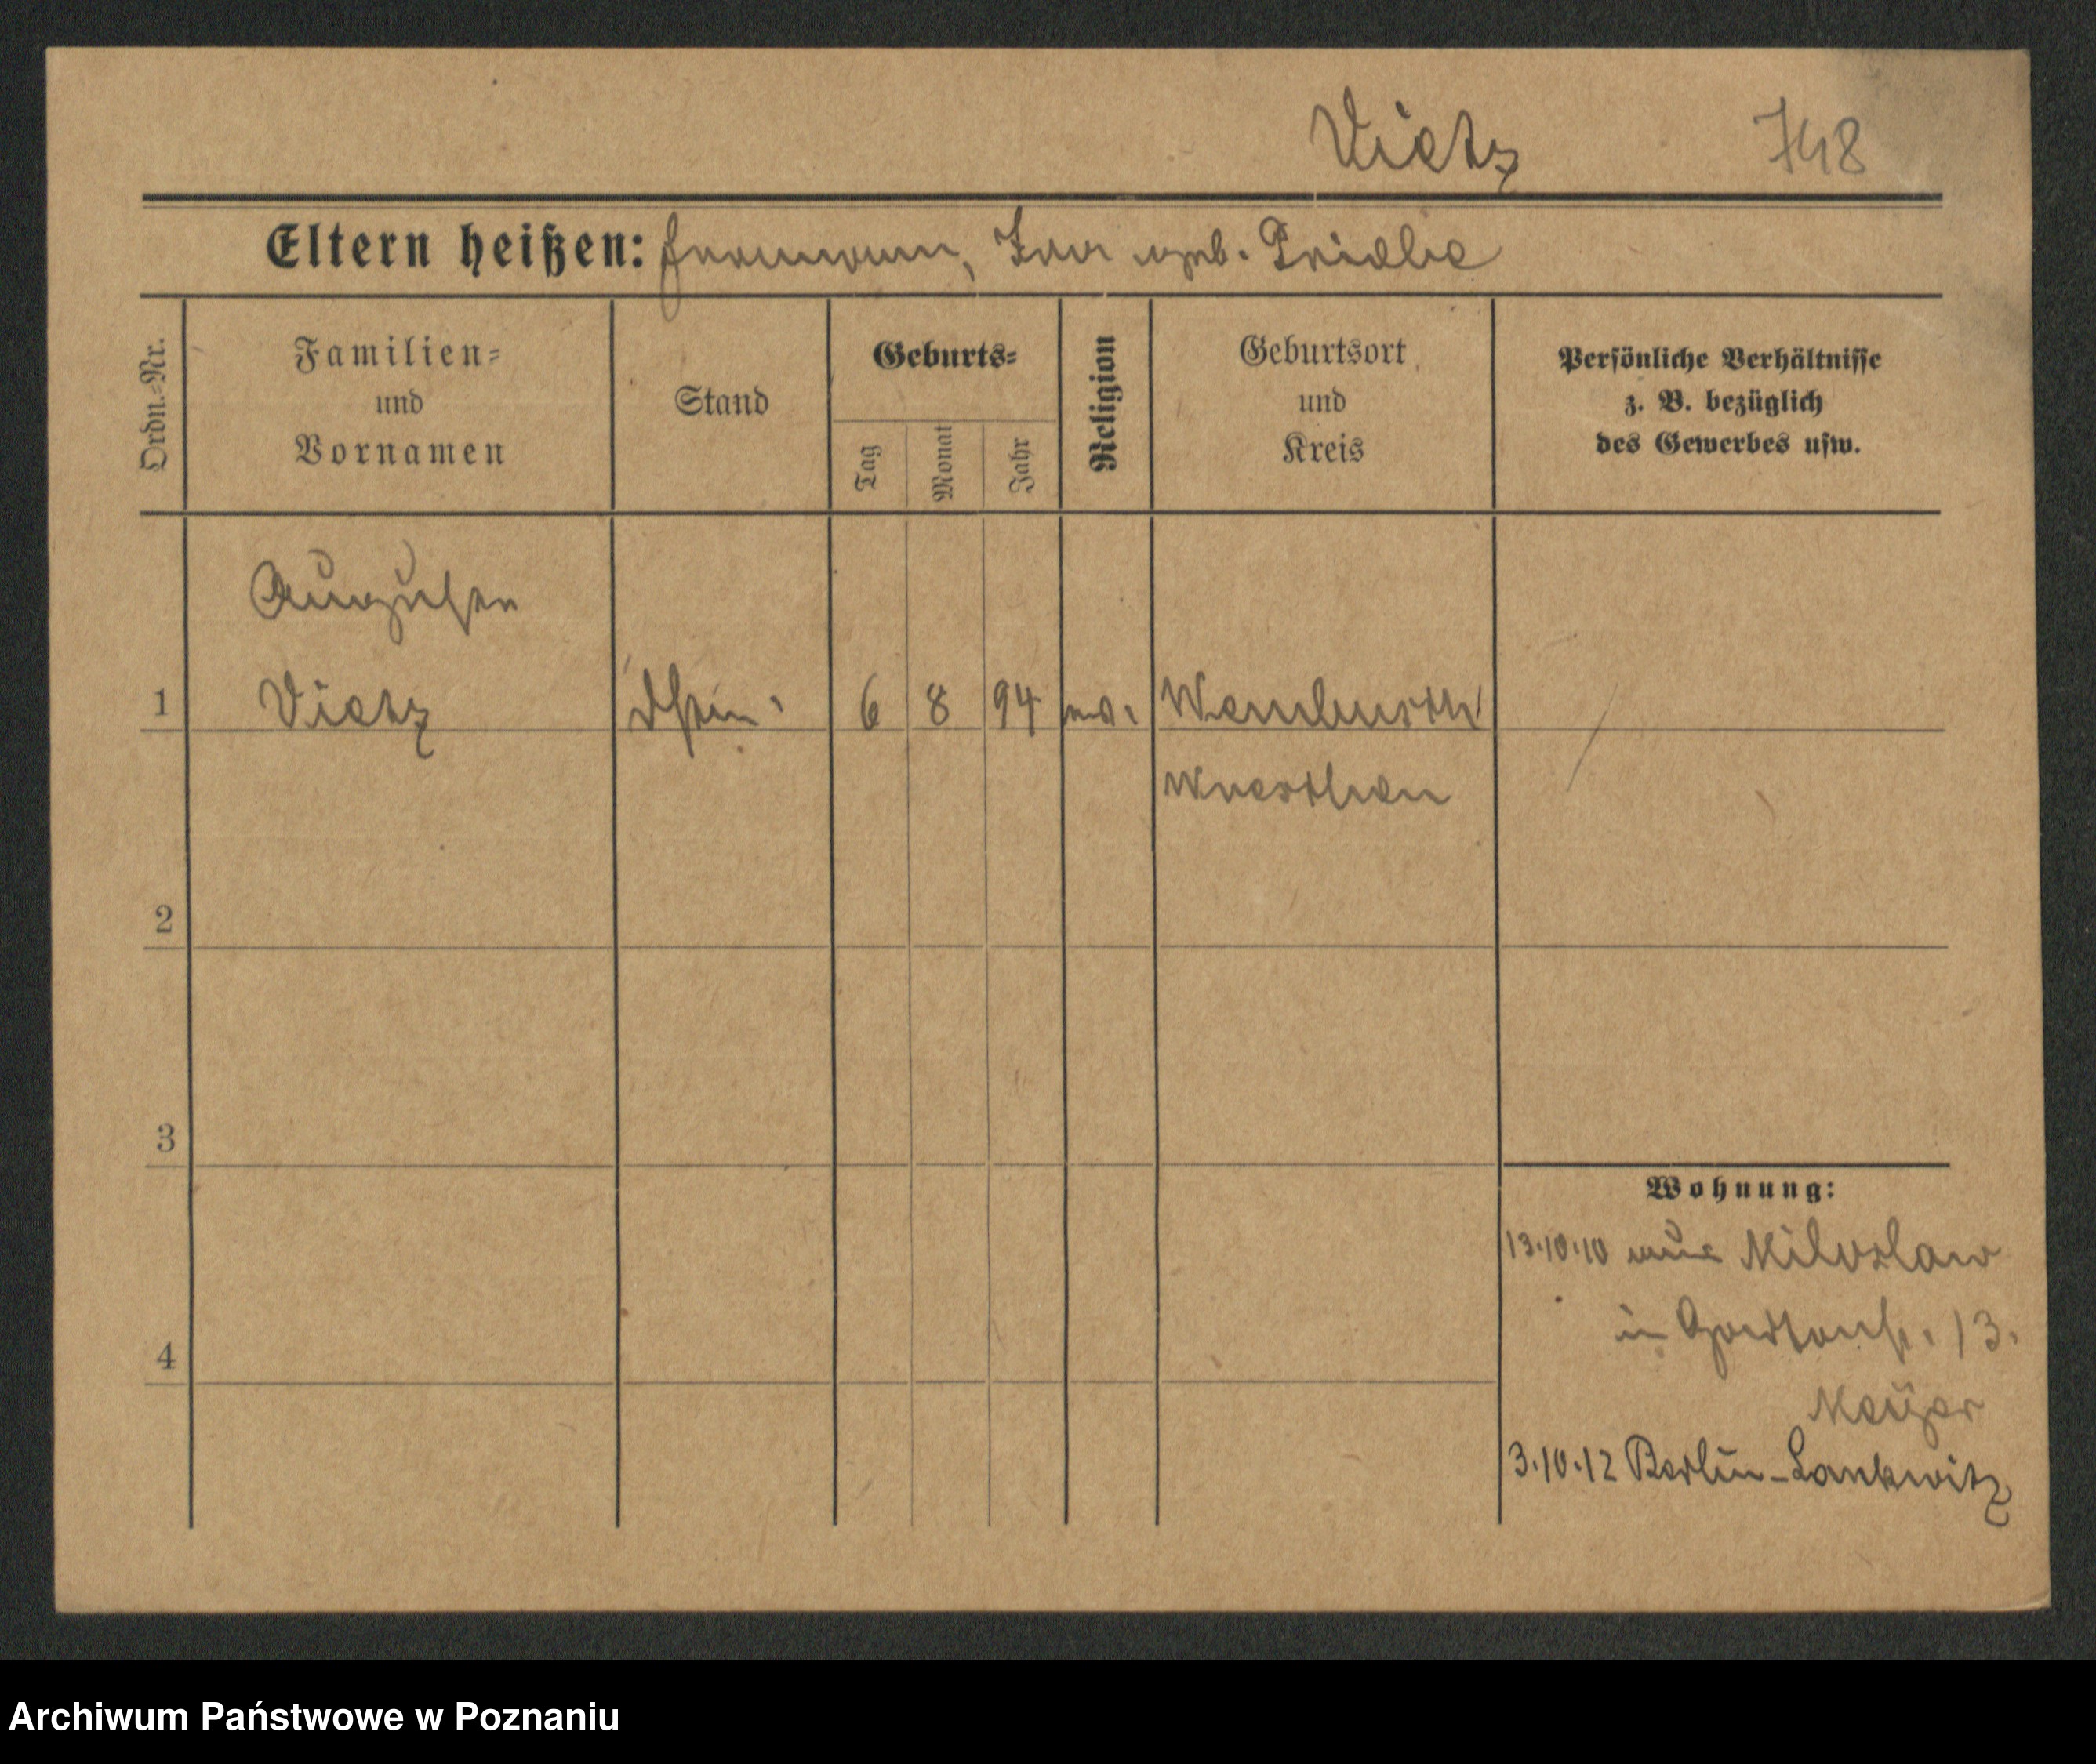 Vietz 748
Eltern heißen: Hermann, Ida geb. Priebe
Ordn.-Nr.
Familien-
und
Vornamen
Stand
Geburts-
Tag
Monat
Jahr
Religion
Geburtsort
und
Kreis
Persönliche Verhältnisse
z. B. bezüglich
des Gewerbes usw.
1
Vietz
6 8 94
Wreschen
2
3
4
Wohnung:
13.10.10 aus Miloslaw
in Gartenstr. 13.
Meyer
3.10.12 Berlin-Lankwitz
Archiwum Państwowe w Poznaniu